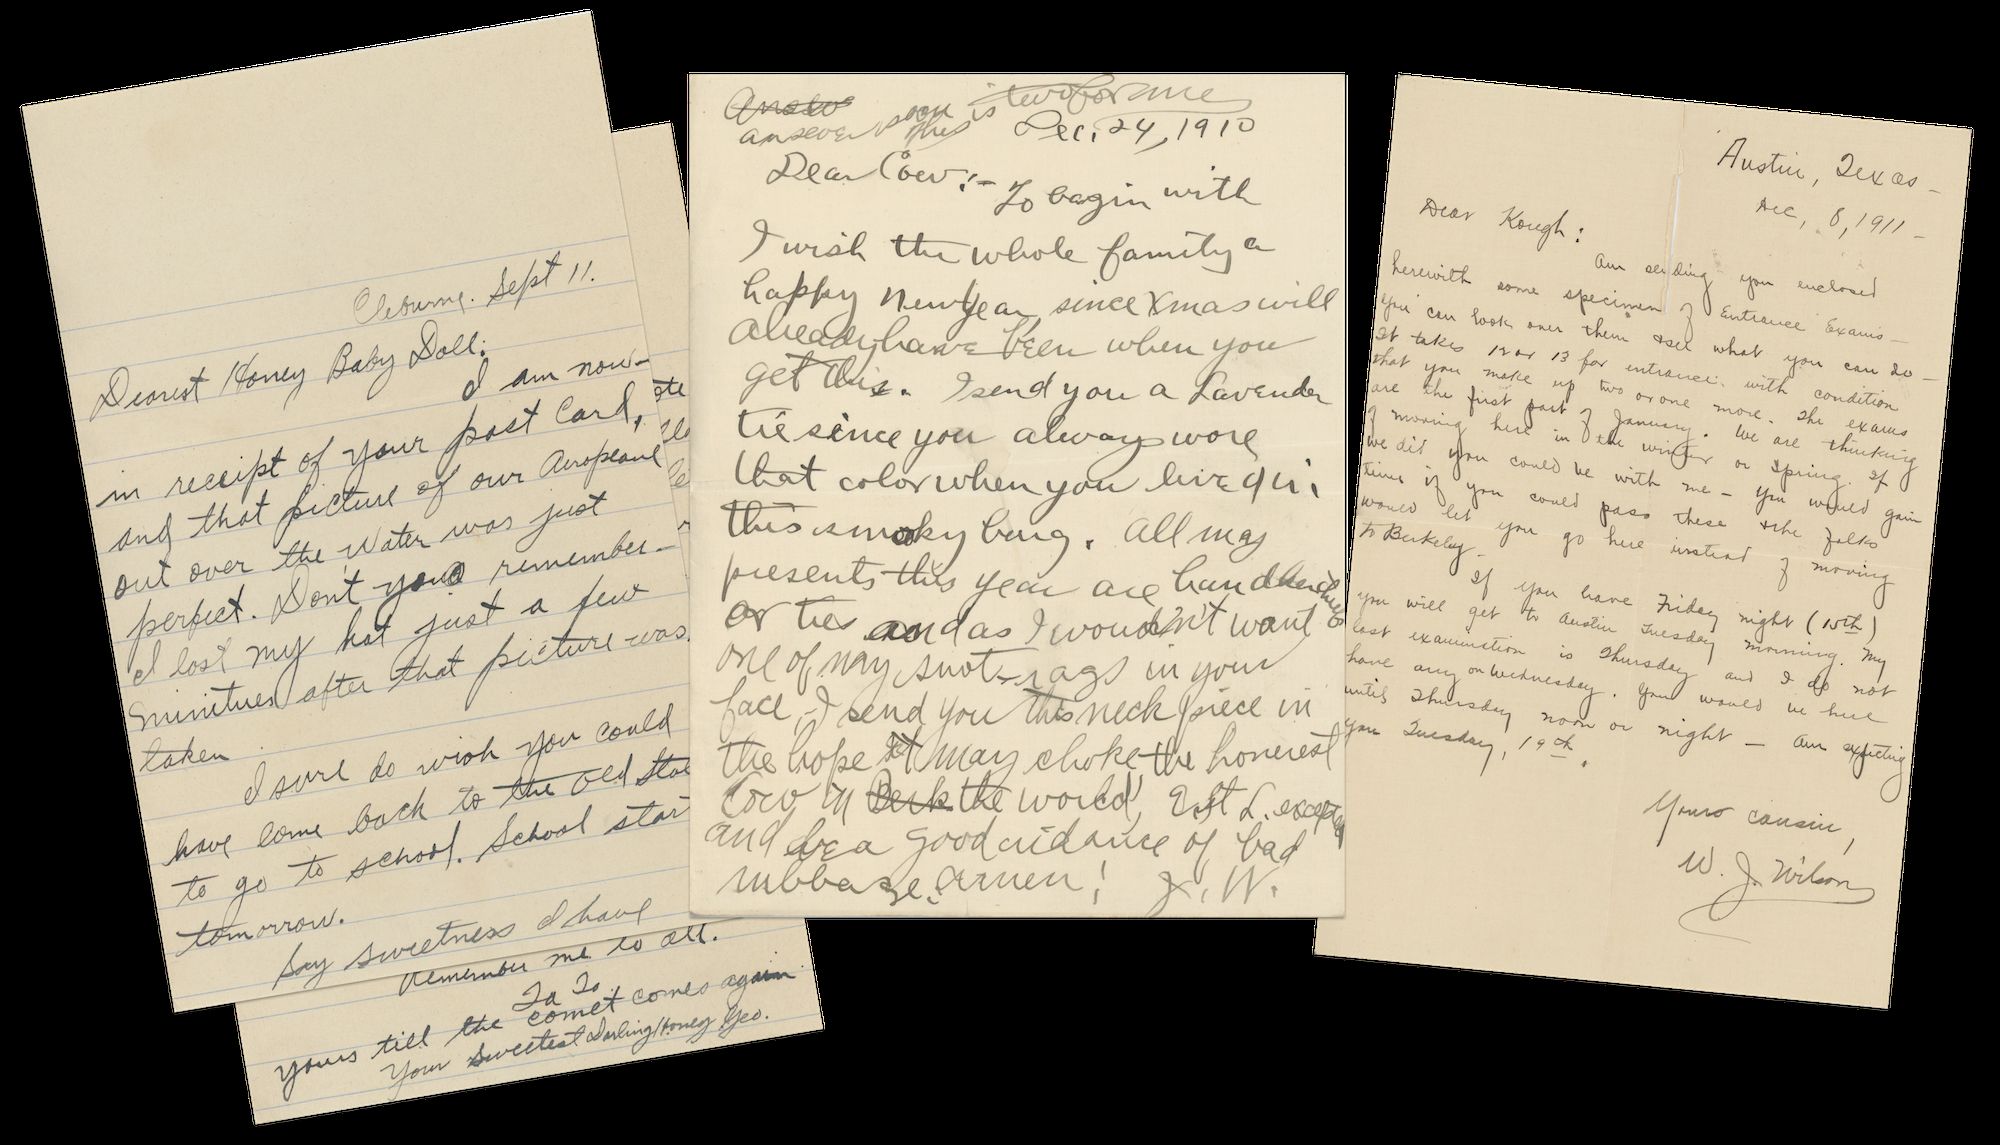 Cleburne. Sept 11.
Dearest Honey Baby Doll:
I am now
in receipt of your post Card,
and that picture of our Aeropeane
out over the Water was just
perfect. Don't you remember
I lost my hat just a few
minitues after that picture was
taken
I sure do wish you could
have come back to the old
to go to school. School star
tomorrow.
Say sweetness I have
Remember me to all.
Ta Ta
yours till the comet comes again
Your Sweetest Darling Honey Geo.
answer soon is
this
Dec. 24, 1910
Dear Cow:- To begin with
I wish the whole family a
happy New Year since Xmas will
already have been when you
get this. I send you a Lavender
tie since you always wore
that color when you lived in
this smoky burg. All my
presents this year are handkerchiefs
or ties and as I wouldn't want
one of my snot-rags in your
face, I send you this neck piece in
the hope it may choke the
Cow in Berk the world, E.St L. excepted
and be a good ridance of bad
rubbage. Amen! J. W.
Austin, Texas -
Dec, 8, 1911 -
Dear Kough:
Am sending you enclosed
herewith some specimen of Entrance Exams -
you can look over them & see what you can do -
It takes 12 or 13 for entrance. with condition
that you make up two or one more. The exams
are the first part of January. We are thinking
of moving here in the winter or Spring. If
we did you could be with me - you would gain
time if you could pass these & the folks
would let you go here instead of moving
to Berkeley -
If you leave Friday night (15th)
you will get to Austin Tuesday morning. My
last examination is Thursday and I do not
have any on Wednesday. You would be here
until Thursday noon or night - Am expecting
you Tuesday, 19th.
Yours cousin,
W. J. Wilson